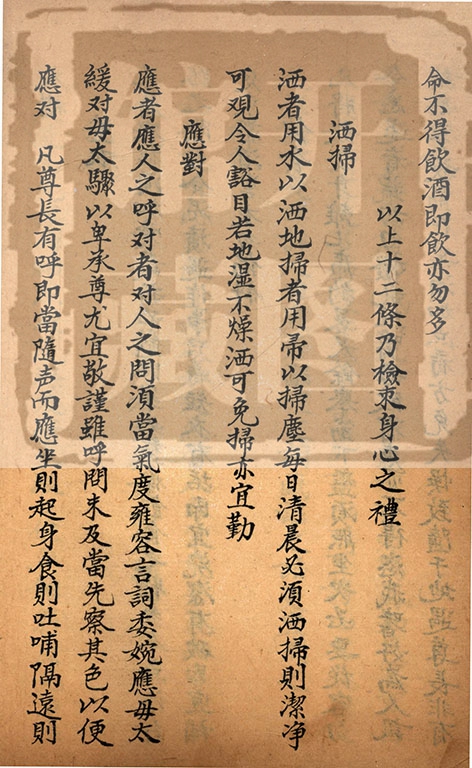 命不得飲酒即飲亦勿多
以上十二條乃檢束身心之禮
洒掃
洒者用水以洒地掃者用帚以掃塵每日清晨必須洒掃則潔净
可观令人豁目若地湿不燥洒可免掃亦宜勤
應對
應者應人之呼对者对人之問須當氣度雍容言詞委婉應毋太
緩对毋太驟以卑承尊尤宜敬謹雖呼問未及當先察其色以便
應对 凡尊長有呼即當隨声而應坐則起身食則吐哺隔遠則